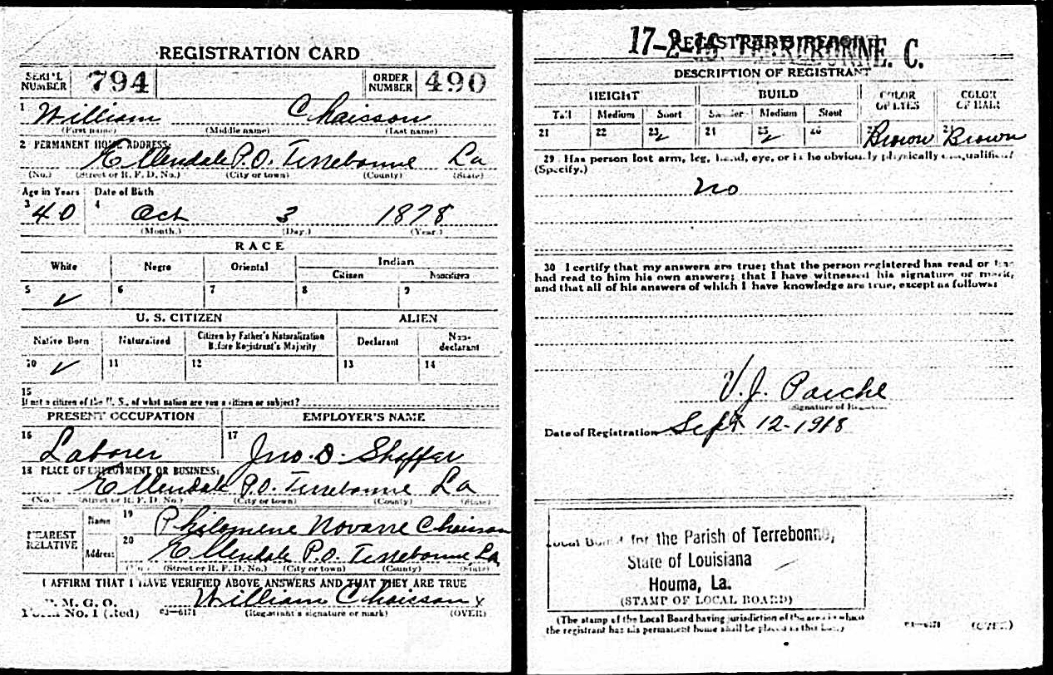 REGISTRATION CARD
SERIAL NUMBER 794 ORDER NUMBER 490
1 William Chaisson
(First name) (Middle name) (Last name)
2 PERMANENT HOME ADDRESS:
Ellendale P.O. Terrebonne La
(No.) (Street or R. F. D. No.) (City or town) (County) (State)
Age in Years Date of Birth
3 40 4 Oct 3 1878
(Month.) (Day.) (Year.)
RACE
White Negro Oriental Indian
Citizen Noncitizen
5 ✓ 6 7 8 9
U. S. CITIZEN ALIEN
Native Born Naturalized Citizen by Father's Naturalization Before Registrant's Majority Declarant Non-declarant
10 ✓ 11 12 13 14
15
If not a citizen of the U. S., of what nation are you a citizen or subject?
PRESENT OCCUPATION EMPLOYER'S NAME
16 Laborer 17 Jno. D. Shaffer
18 PLACE OF EMPLOYMENT OR BUSINESS:
Ellendale P.O. Terrebonne La
(No.) (Street or R. F. D. No.) (City or town) (County) (State)
NEAREST RELATIVE Name 19 Philomene Novarre Chaisson
Address 20 Ellendale P.O. Terrebonne La
(No.) (Street or R. F. D. No.) (City or town) (County) (State)
I AFFIRM THAT I HAVE VERIFIED ABOVE ANSWERS AND THAT THEY ARE TRUE
P. M. G. O.
Form No. 1 (Red) 03—6171 William Chaisson x
(Registrant's signature or mark) (OVER)
REGISTRAR'S REPORT
17-2-16 TERREBONNE. C.
DESCRIPTION OF REGISTRANT
HEIGHT BUILD COLOR OF EYES COLOR OF HAIR
Tall Medium Short Slender Medium Stout
21 22 23 ✓ 24 25 ✓ 26 27 Brown 28 Brown
29 Has person lost arm, leg, hand, eye, or is he obviously physically disqualified?
(Specify.)
no
30 I certify that my answers are true; that the person registered has read or has
had read to him his own answers; that I have witnessed his signature or mark,
and that all of his answers of which I have knowledge are true, except as follows:
V. J.
(Signature of Registrar)
Date of Registration Sept 12-1918
Local Board for the Parish of Terrebonne,
State of Louisiana
Houma, La.
(STAMP OF LOCAL BOARD)
(The stamp of the Local Board having jurisdiction of the area in which
the registrant has his permanent home shall be placed in this box.)
03—6171 (OVER)